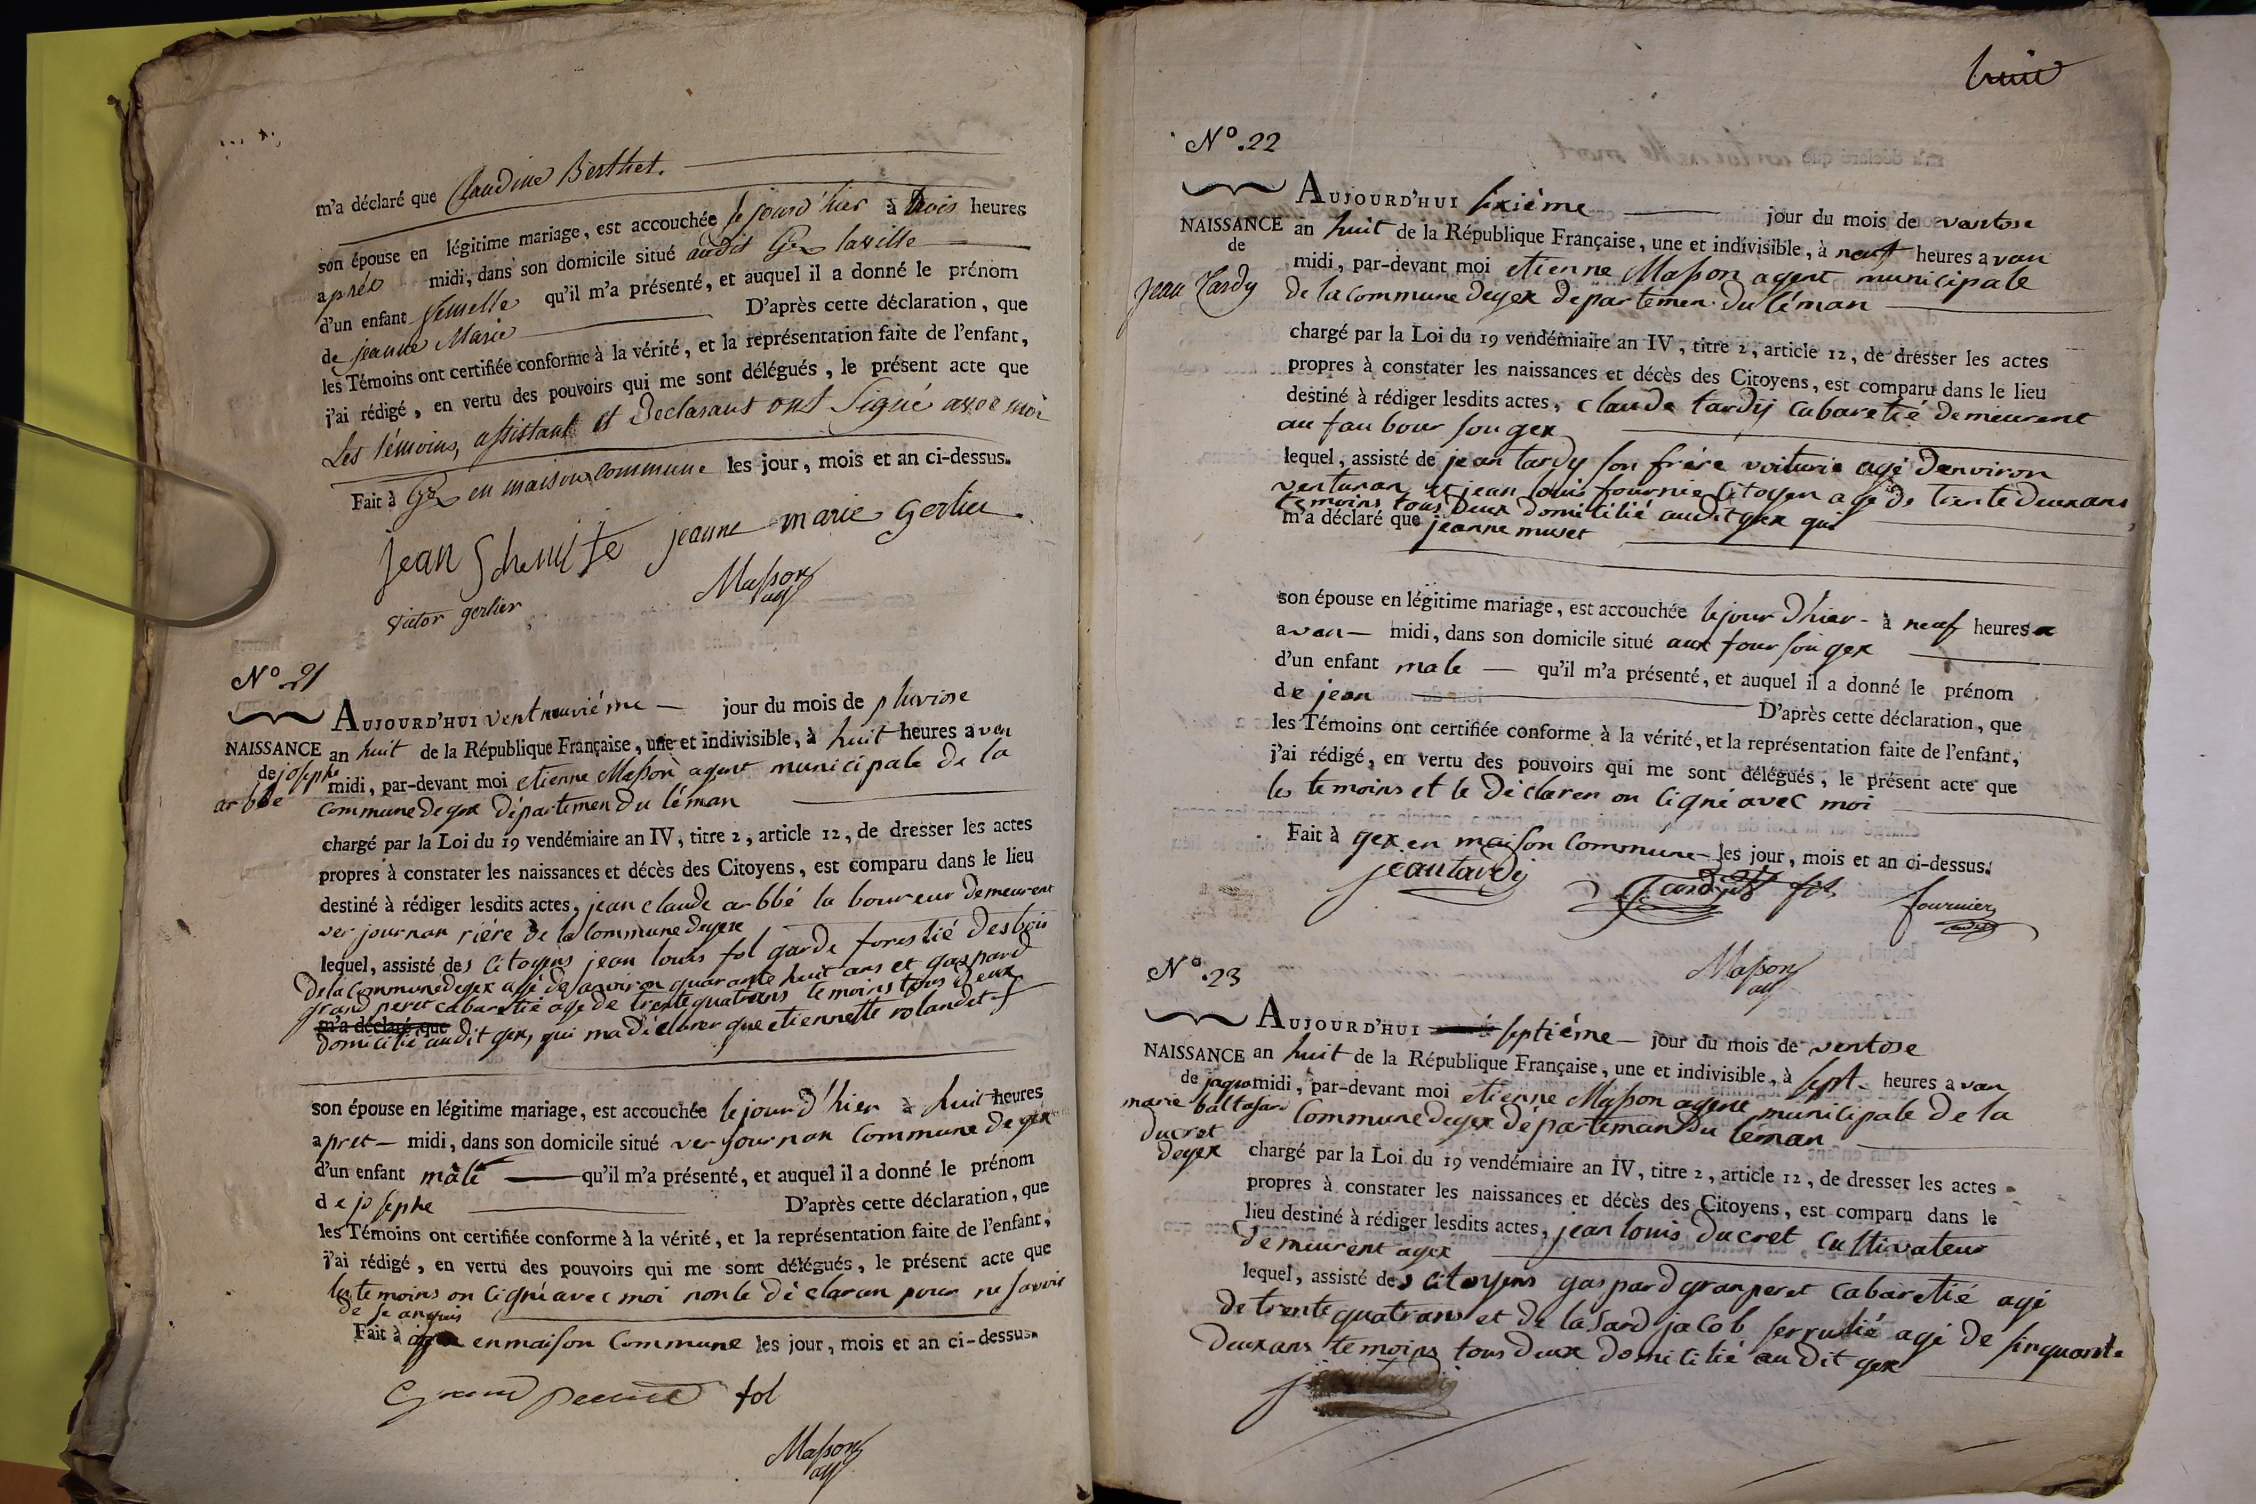 m'a déclaré que Claudine Berthet.
son épouse en légitime mariage, est accouchée le jourd'hier à trois heures
aprés midi, dans son domicile situé audit Gex laville
d'un enfant femelle qu'il m'a présenté, et auquel il a donné le prénom
de jeanne Marie D'après cette déclaration, que
les Témoins ont certifiée conforme à la vérité, et la représentation faite de l'enfant,
j'ai rédigé, en vertu des pouvoirs qui me sont délégués, le présent acte que
Les témoins, assistant et Declarant ont Signé avec moi
Fait à Gex en maison commune les jour, mois et an ci-dessus.
jean Schmite jeanne marie gerlier
victor gerlier Masson
agt
N° 21
AUJOURD'HUI ventneuviéme jour du mois de pluviose
NAISSANCE an huit de la République Française, une et indivisible, à huit heures avan
de josephe midi, par-devant moi etienne Masson agent municipale de la
arbbé commune de gex département du léman
chargé par la Loi du 19 vendémiaire an IV, titre 2, article 12, de dresser les actes
propres à constater les naissances et décès des Citoyens, est comparu dans le lieu
destiné à rédiger lesdits actes, jean claude arbbé laboureur demeurent
ver journan riére de la Commune degex
lequel, assisté des citoyens jean louis fol garde forestié desbois
dela Commune degex agé de anviron quarante huit ans et gaspard
grand peret cabaretié age de trente quatrans temoins tous deux
m'a déclaré que
domicilié audit gex, qui ma déclarer que etiennette rolandet
son épouse en légitime mariage, est accouchée lejourd'hier à huit heures
apret midi, dans son domicile situé ver journan Commune de gex
d'un enfant mâle qu'il m'a présenté, et auquel il a donné le prénom
de josephe D'après cette déclaration, que
les Témoins ont certifiée conforme à la vérité, et la représentation faite de l'enfant,
j'ai rédigé, en vertu des pouvoirs qui me sont délégués, le présent acte que
les temoins on cigné avec moi non le déclaran pour ne savoir
de se anquis
Fait à gex en maison Commune les jour, mois et an ci-dessus.
Grand perret fol
Masson
agt
huit
N°. 22
AUJOURD'HUI sixiéme jour du mois de vantose
NAISSANCE an huit de la République Française, une et indivisible, à neuf heures avan
de midi, par-devant moi etienne Masson agent municipale
jean Tardy de la commune degex departemen du léman
chargé par la Loi du 19 vendémiaire an IV, titre 2, article 12, de dresser les actes
propres à constater les naissances et décès des Citoyens, est comparu dans le lieu
destiné à rédiger lesdits actes, claude tardy cabaretié demeurent
au faubour sou gex
lequel, assisté de jean tardy son frére voiturie agé danviron
venturan et jean louis fournie Citoyen agé de trente deuxans
temoins tous deux domicilié audit gex qui
m'a déclaré que jeanne muset
son épouse en légitime mariage, est accouchée le jour dhier à neuf heures
avan midi, dans son domicile situé aux four sou gex
d'un enfant male qu'il m'a présenté, et auquel il a donné le prénom
de jean D'après cette déclaration, que
les Témoins ont certifiée conforme à la vérité, et la représentation faite de l'enfant,
j'ai rédigé, en vertu des pouvoirs qui me sont délégués, le présent acte que
les temoins et le déclaren on cigné avec moi
Fait à gex en maison Commune les jour, mois et an ci-dessus.
jeantardy fournier
Masson
agt
N°. 23
AUJOURD'HUI septiéme jour du mois de ventose
NAISSANCE an huit de la République Française, une et indivisible, à sept heures avan
de jaque midi, par-devant moi etienne Masson agent municipale de la
marie baltasar Commune degex département du léman
ducret
degex chargé par la Loi du 19 vendémiaire an IV, titre 2, article 12, de dresser les actes
propres à constater les naissances et décès des Citoyens, est comparu dans le
lieu destiné à rédiger lesdits actes, jean louis ducret cultivateur
demeurent agex
lequel, assisté des citoyens gaspard granperet cabaretié agé
de trente quatrans et de lasard jacob serrurié agé de sinquante
deuxans temoins tous deux domicilié audit gex